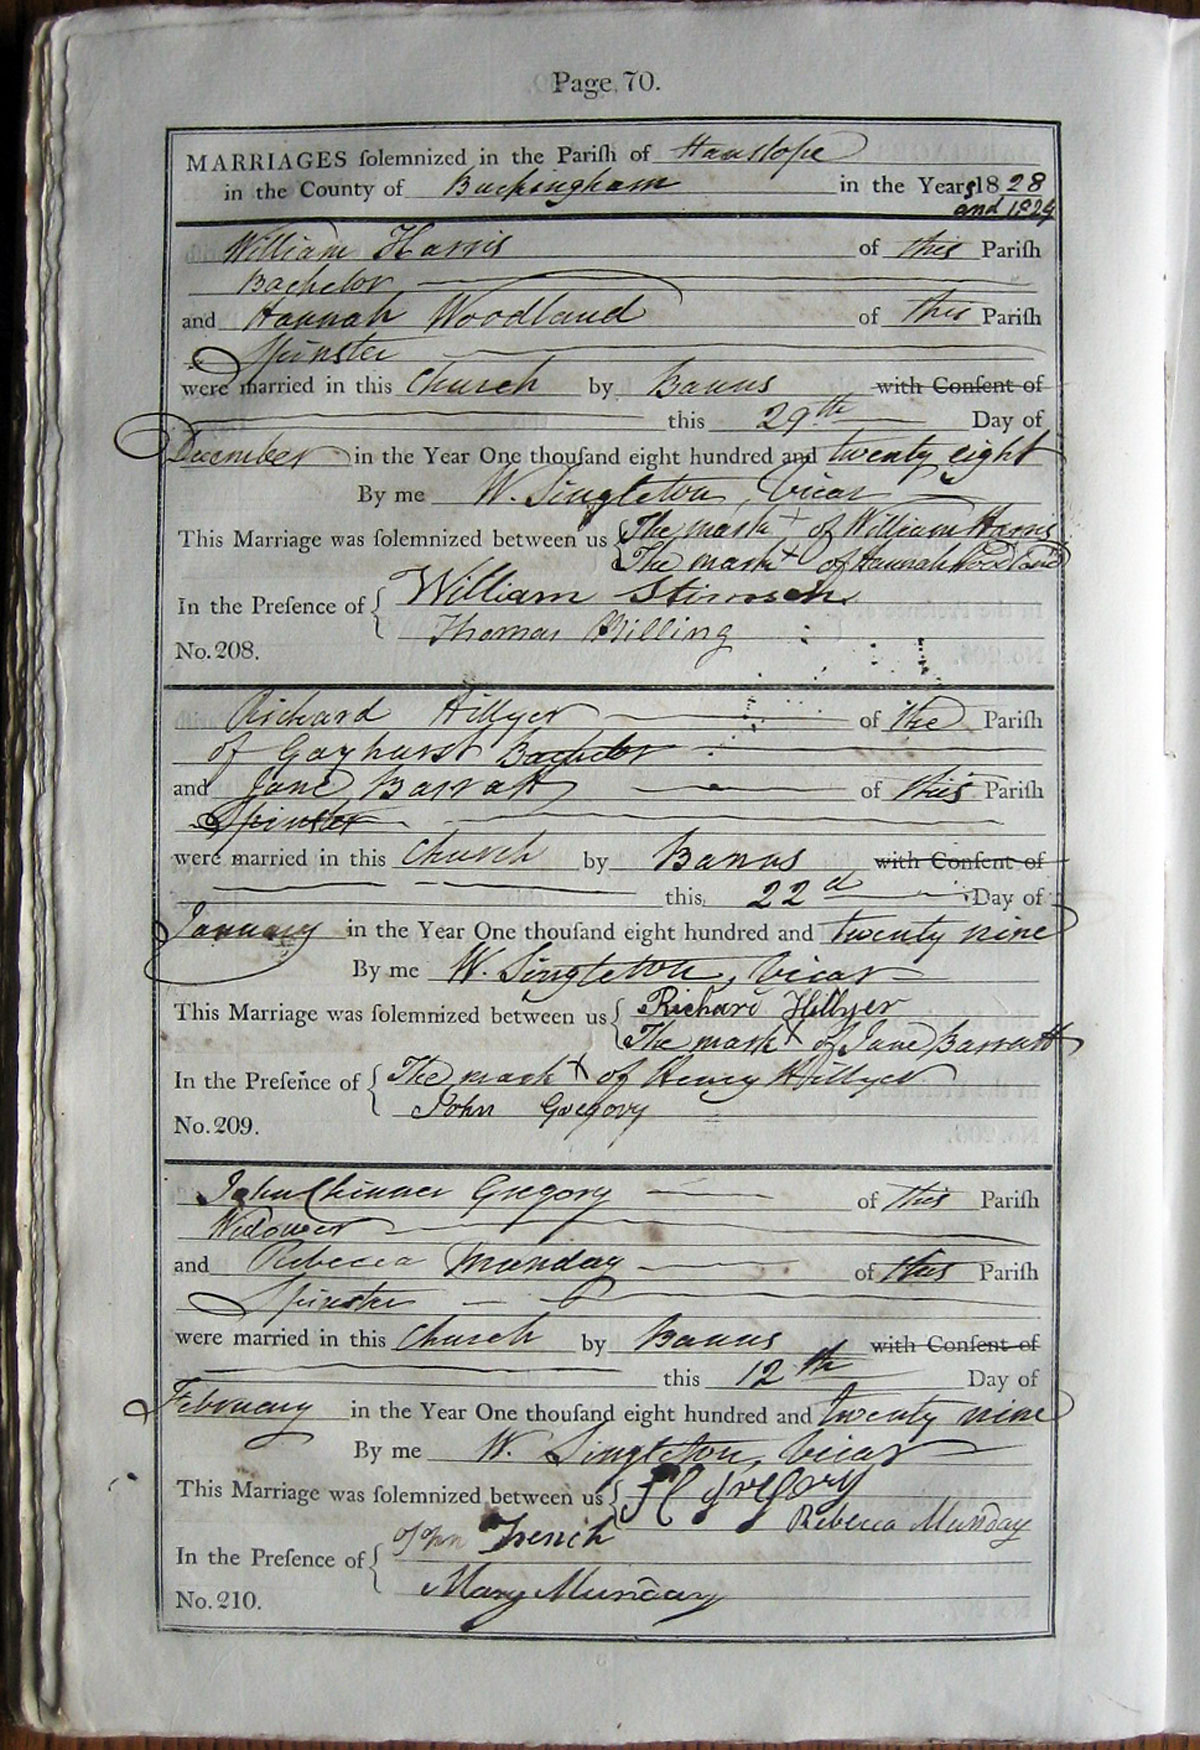 Page, 70.
MARRIAGES ſolemnized in the Pariſh of Hanslope
in the County of Buckingham in the Years 1828
and 1829
William Harris of this Pariſh
Bachelor
and Hannah Woodland of this Pariſh
Spinster
were married in this Church by Banns with Conſent of
this 29th Day of
December in the Year One thouſand eight hundred and twenty eight
By me W. Singleton, Vicar
This Marriage was ſolemnized between us { The mark + of William Harris
The mark + of Hannah Woodland
In the Preſence of { William Stimson
Thomas Billing
No. 208.
Richard Hillyer of the Pariſh
of Gayhurst Bachelor
and Jane Barratt of this Pariſh
Spinster
were married in this Church by Banns with Conſent of
this 22d Day of
January in the Year One thouſand eight hundred and twenty nine
By me W. Singleton, Vicar
This Marriage was ſolemnized between us { Richard Hillyer
The mark X of Jane Barratt
In the Preſence of { The mark X of Henry Hillyer
John Gregory
No. 209.
John Chinner Gregory of this Pariſh
Widower
and Rebecca Munday of this Pariſh
Spinster
were married in this Church by Banns with Conſent of
this 12th Day of
February in the Year One thouſand eight hundred and twenty nine
By me W. Singleton, Vicar
This Marriage was ſolemnized between us { Gregory
Rebecca Munday
In the Preſence of { John French
Mary Munday
No. 210.